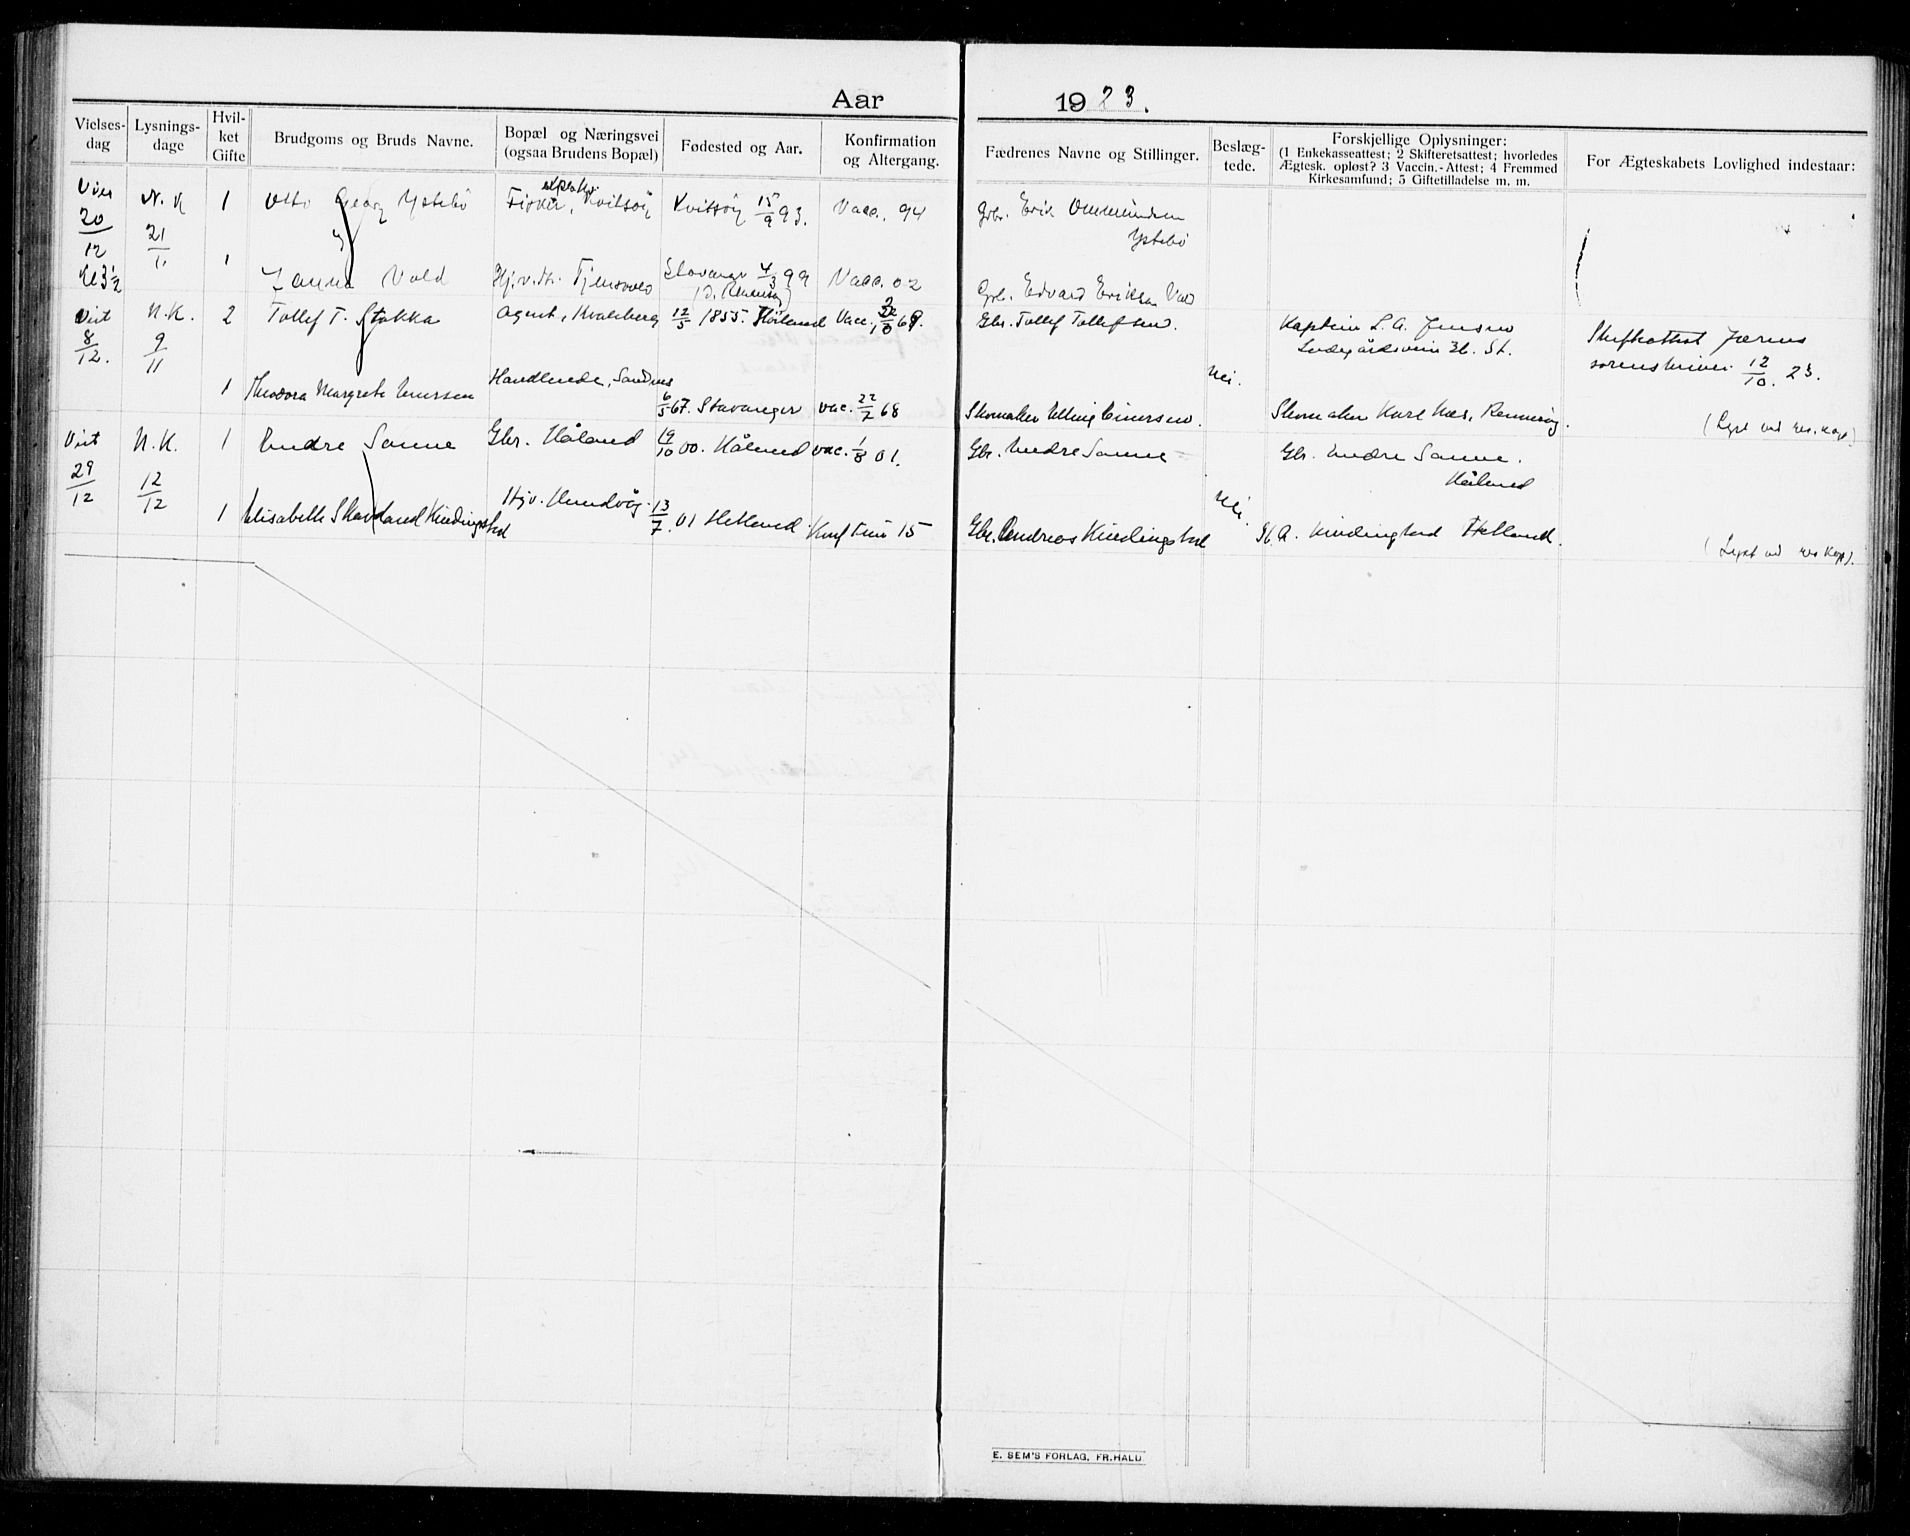 Aar 1923.
Vielses-
dag
Lysnings-
dage
Hvil-
ket
Gifte
Brudgoms og Bruds Navne.
Bopæl og Næringsvei
(ogsaa Brudens Bopæl)
Fødested og Aar.
Konfirmation
og Altergang.
Fædrenes Navne og Stillinger.
Beslæg-
tede.
Forskjellige Oplysninger:
(1 Enkekasseattest; 2 Skifteretsattest; hvorledes
Ægtesk. opløst? 3 Vaccin.-Attest; 4 Fremmed
Kirkesamfund; 5 Giftetilladelse m. m.
For Ægteskabets Lovlighed indestaar:
Viet 20/12 Kl 3 1/2
N. K 21/11
1 Otto Georg Ystebö Fisker, Kvitsöy Kvitsöy 15/9 93. Vacc. 94 Gbr. Erik Ommundsen
Ystebö
og
1 Janna Vold Hj.v.dtr. Stavanger 4/3 99 Vacc. 02 Gbr. Edvard Eriksen Vold
Viet 8/12. N.K. 9/11
2 Tollef T. Stokka Agent, Kvaleberg 12/5 1855. Höiland Vacc. Gbr. Tollef Tollefsen. Kaptein L. A. Jensen
St. Skifteattest Jærens
sorenskriver 12/10. 23.
Nei.
1 Theodora Margrete Einersen Handlende, Sandnes 6/5 67. Stavanger vac. 22/7 68 Skomaker Elling Einersen. Skomaker Karl Næs, Rennesöy.
(Lyst ved res. kap.)
Viet 29/12 N.K. 12/12
1 Endre Sanne Gbr. Håland 19/10 00. Håland vac. 1/8 01. Gbr. Endre Sanne Gbr. Endre Sanne.
Håland
Nei.
1 Elisabeth Skavland Kindingstad Hjv. Hundvåg. 13/7. 01 Hetland. Konf 15 Gbr. Andreas Kindingstad A. Kindingstad Hetland.
(Lyst ved res kap).
E. SEM'S FORLAG, FR.HALD